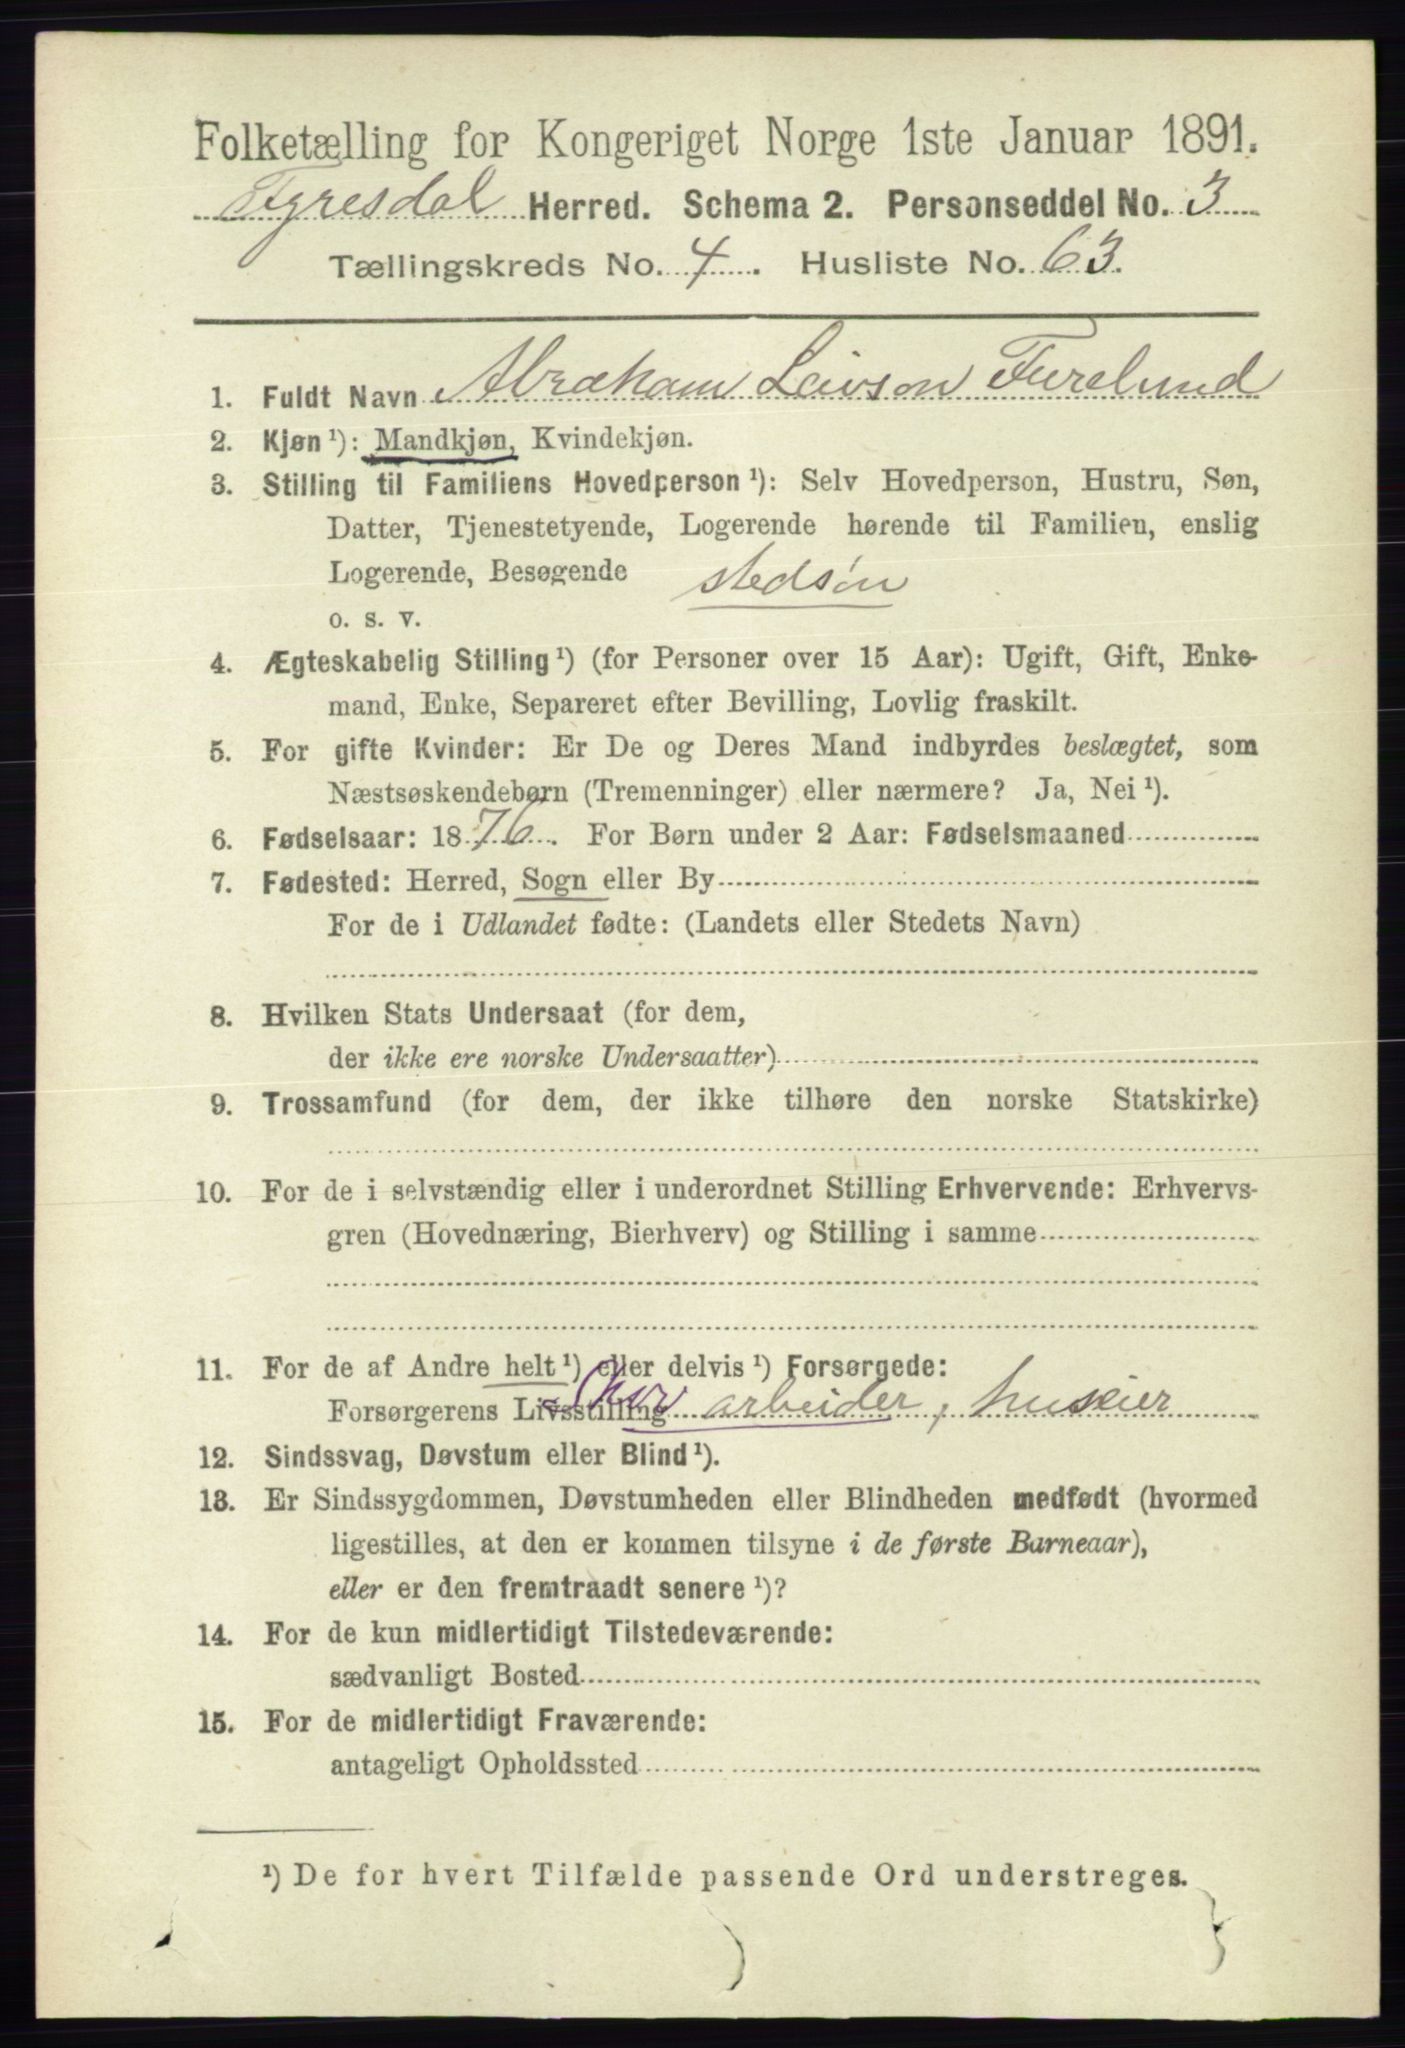 Folketælling for Kongeriget Norge 1ste Januar 1891.
Fyresdal Herred. Schema 2. Personseddel No. 3
Tællingskreds No. 4. Husliste No. 63.
1. Fuldt Navn Abraham Leivson Furelund
2. Kjøn ¹): Mandkjøn, Kvindekjøn.
3. Stilling til Familiens Hovedperson ¹): Selv Hovedperson, Hustru, Søn,
Datter, Tjenestetyende, Logerende hørende til Familien, enslig
Logerende, Besøgende stedsøn
o. s. v.
4. Ægteskabelig Stilling ¹) (for Personer over 15 Aar): Ugift, Gift, Enke-
mand, Enke, Separeret efter Bevilling, Lovlig fraskilt.
5. For gifte Kvinder: Er De og Deres Mand indbyrdes beslægtet, som
Næstsøskendebørn (Tremenninger) eller nærmere? Ja, Nei ¹).
6. Fødselsaar: 1876. For Børn under 2 Aar: Fødselsmaaned
7. Fødested: Herred, Sogn eller By
For de i Udlandet fødte: (Landets eller Stedets Navn)
8. Hvilken Stats Undersaat (for dem,
der ikke ere norske Undersaatter)
9. Trossamfund (for dem, der ikke tilhøre den norske Statskirke)
10. For de i selvstændig eller i underordnet Stilling Erhvervende: Erhvervs-
gren (Hovednæring, Bierhverv) og Stilling i samme
11. For de af Andre helt ¹) eller delvis ¹) Forsørgede:
Forsørgerens Livsstilling arbeider, huseier
12. Sindssvag, Døvstum eller Blind ¹).
13. Er Sindssygdommen, Døvstumheden eller Blindheden medfødt (hvormed
ligestilles, at den er kommen tilsyne i de første Barneaar),
eller er den fremtraadt senere ¹)?
14. For de kun midlertidigt Tilstedeværende:
sædvanligt Bosted
15. For de midlertidigt Fraværende:
antageligt Opholdssted
¹) De for hvert Tilfælde passende Ord understreges.